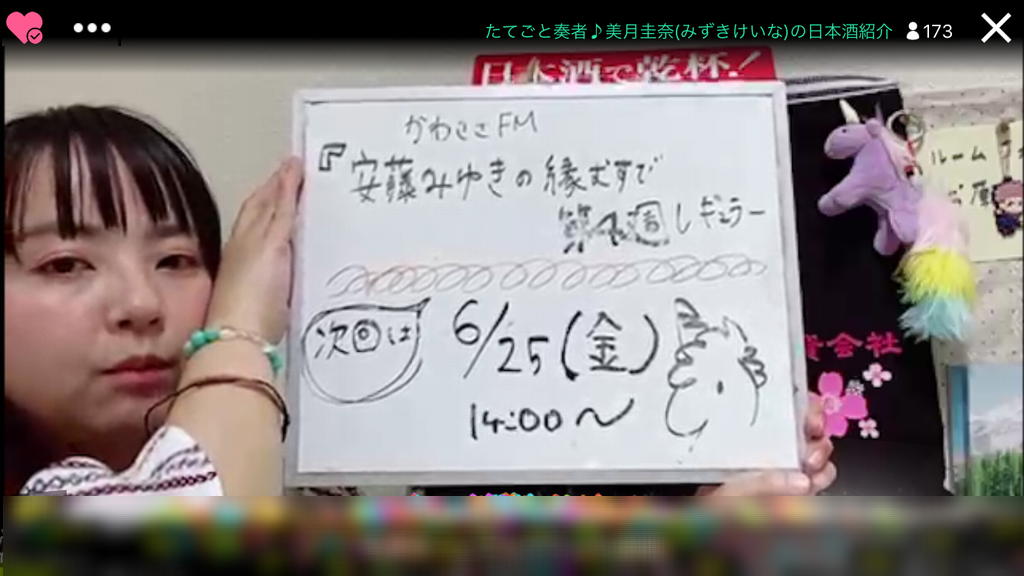 たてごと奏者♪美月圭奈(みずきけいな)の日本酒紹介
173
日本酒で乾杯!
かわさきFM
『安藤みゆきの縁むすび
第4週レギュラー
次回は
6/25(金)
14:00〜
ルーム
資会社